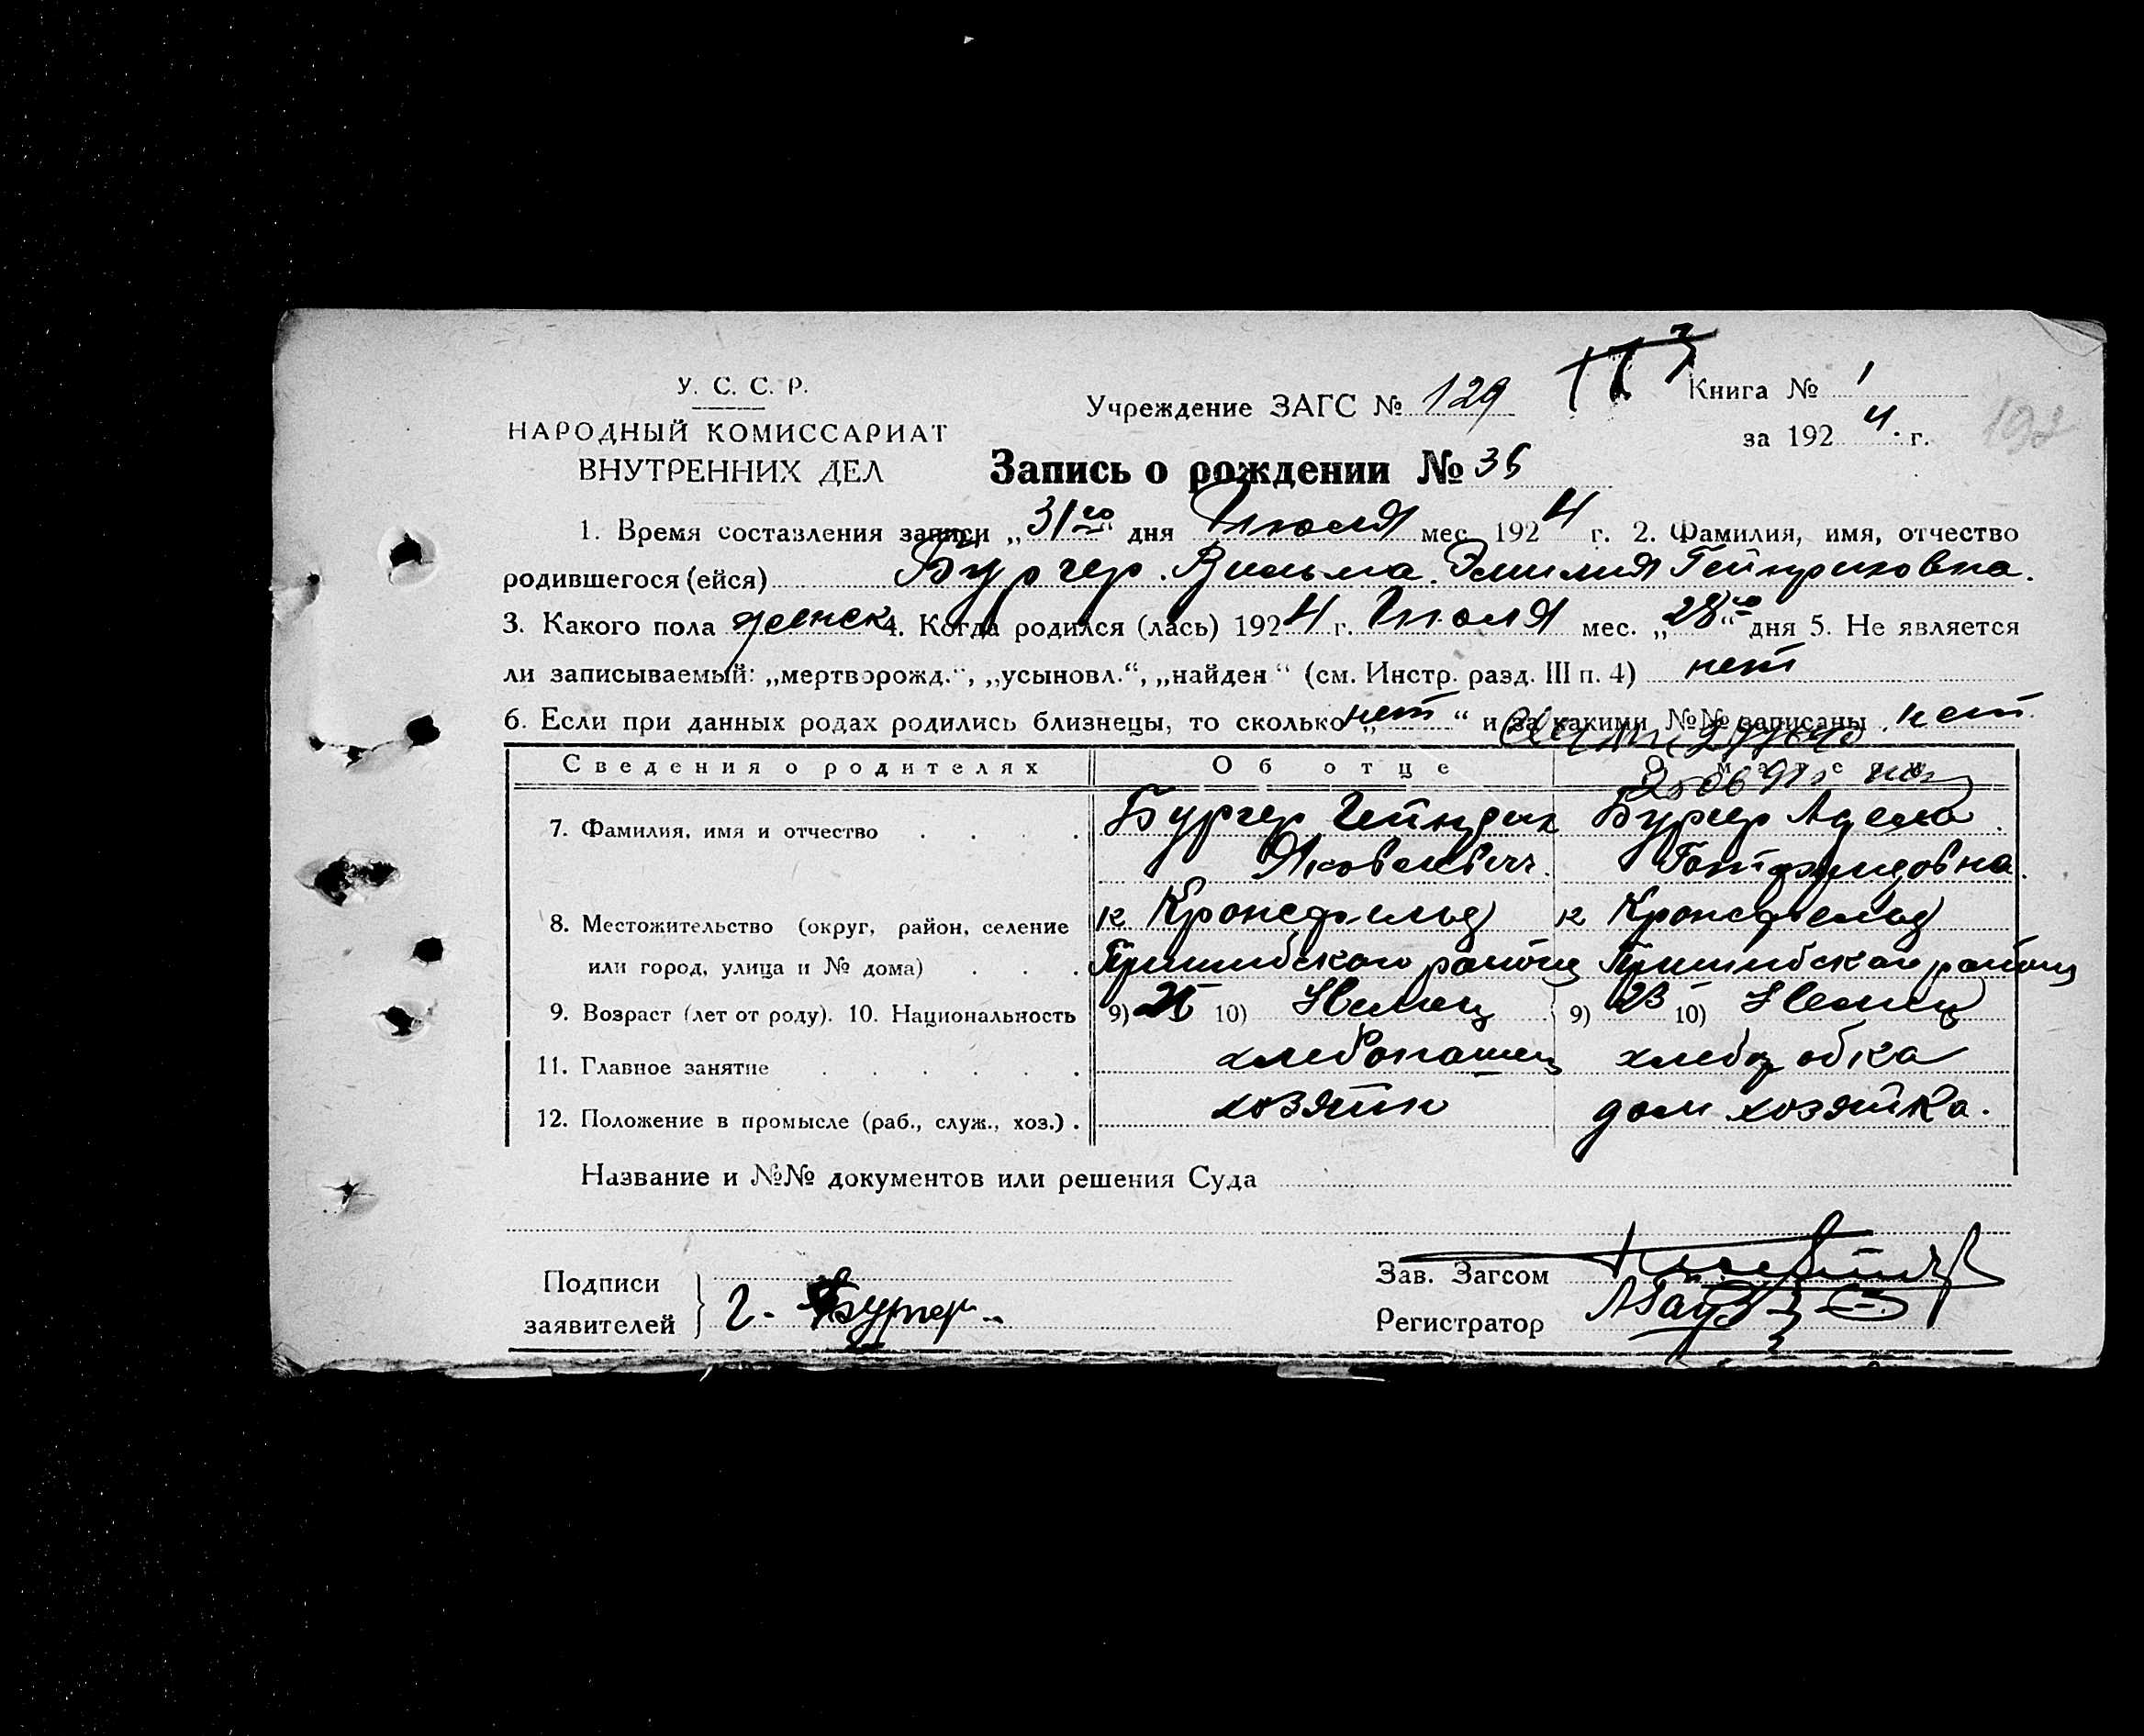 У. С. С. Р.
НАРОДНЫЙ КОМИССАРИАТ
ВНУТРЕННИХ ДЕЛ
Учреждение ЗАГС № 129
Книга № 1
за 1924 г.
Запись о рождении № 35
1. Время составления записи „31го“ дня Июля мес. 1924 г. 2. Фамилия, имя, отчество
родившегося (ейся) Бургер Вильма Эмилия Гейнриховна.
3. Какого пола женск 4. Когда родился (лась) 1924 г. Июля мес. „28го“ дня 5. Не является
ли записываемый: „мертворожд.“, „усыновл.“, „найден“ (см. Инстр. разд. III п. 4) нет
6. Если при данных родах родились близнецы, то сколько „нет“ и за какими №№ записаны нет
Сведения о родителях Об отце О матери
7. Фамилия, имя и отчество Бургер Гейнрих Бургер Адела
Яковлевич. Готфридовна.
8. Местожительство (округ, район, селение к Кронсфельд к Кронсфельд
или город, улица и № дома) Пришибского района Пришибского района
9. Возраст (лет от роду). 10. Национальность 9) 25 10) Немец 9) 23 10) Немец
11. Главное занятие хлебопашец
12. Положение в промысле (раб., служ., хоз.) хозяин дом хозяйка.
Название и №№ документов или решения Суда
Подписи
заявителей Г. Бургер
Зав. Загсом
Регистратор